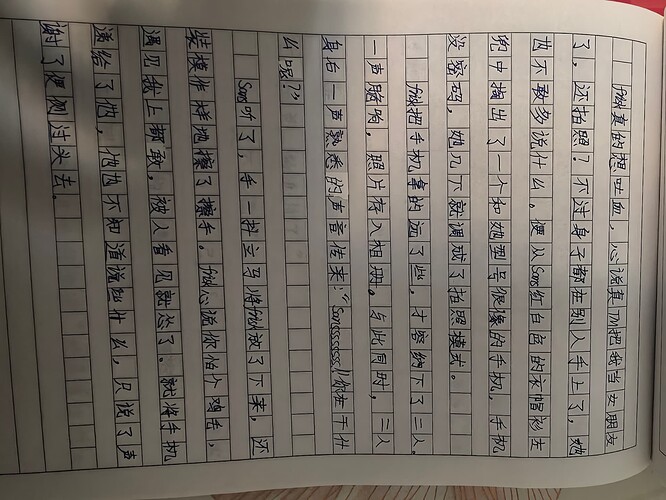 fhd真的想吐血，心说真TM把我当女朋友
了，还拍照？不过身子都在别人手上了，她
也不敢多说什么。便从Sans红白色的衣帽衫左
兜中掏出了一个和她型号很像的手机，手机
没密码，她几下就调成了拍照模式。
把手机拿的远了些，才容纳下了二人。
一声脆响，照片存入相册。与此同时，二人
身后一声熟悉的声音传来：“Sansssssss!!你在干什
么呢？”
Sans听了，手一抖立马将放了下来，还
装模作样地擦了擦手。心说你怕个鸡毛，
遇见我上都敢，被人看见就怂了。就将手机
递给了他，他也不知道说些什么，只说了声
谢了便侧过头去。